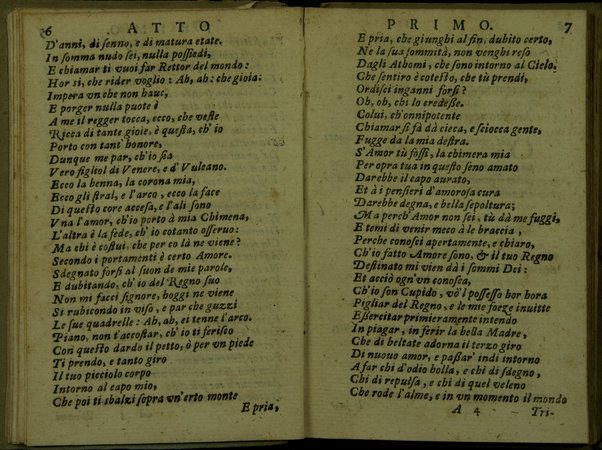 6 ATTO
D'anni, di senno, e di matura etate.
In somma nudo sei, nulla possiedi,
E chiamar ti vuoi far Rettor del mondo:
Hor sì, che rider voglio: Ah, ah: che gioia:
Impera vn che non hauc,
E porger nulla puote è
A me il regger tocca, ecco, che veste
Ricca di tante gioie, è questa, ch'io
Porto con tant' honore,
Dunque me par, ch'io sia
Vero figliol di Venere, e d' Vulcano.
Ecco la benna, la corona mia,
Ecco gli stral, e l'arco, ecco la face
Di questo core accesa, e l'ali sono
Vna l'amor, ch'io porto à mia Chimena,
L'altra è la fede, ch'io cotanto osseruo:
Ma chi è costui, che per co là ne viene?
Secondo i portamenti è certo Amore.
Sdegnato forsi al suon de mie parole,
E dubitando, ch'io del Regno suo
Non mi facci signore, hoggi ne viene
Sì rubicondo in viso, e par che guzzi
Le sue quadrelle: Ah, ah, ei tenne l'arco.
Piano, non t'accostar, ch'io ti ferisco
Con questo dardo il petto, ò per vn piede
Ti prendo, e tanto giro
Il tuo picciolo corpo
Intorno al capo mio,
Che poi ti sbalzi sopra vn'erto monte
E pria,
PRIMO. 7
E pria, che giunghi al fin, dubito certo,
Ne la sua sommità, non venghi reso
Dagli Athomi, che sono intorno al Cielo.
Che sentiro è cotesto, che tù prendi,
Ordisci inganni forsi?
Oh, oh, chi lo credesse.
Colui, ch'onnipotente
Chiamar si fà dà cieca, e sciocca gente,
Fugge da la mia destra.
S'Amor tù fossi, la chimera mia
Per opra tua in questo seno amato
Darebbe il capo aurato,
Et à i pensieri d'amorosa cura
Darebbe degna, e bella sepoltura;
Ma perch'Amor non sei, tù dà me fuggi,
E temi di venir meco à le braccia,
Perche conosci apertamente, e chiaro,
Ch'io fatto Amore sono, & il tuo Regno
Destinato mi vien dà i sommi Dei:
Et acciò ogn'vn conosca,
Ch'io son Cupido, vò'l possesso hor hora
Pigliar del Regno, e le mie foeze inuitte
Essercitar primieramente intendo
In piagar, in ferir la bella Madre,
Che di beltate adorna il terzo giro
Di nuouo amor, e passar' indi intorno
A far chi d'odio bolla, e chi di sdegno,
Chi di repulsa, e chi di quel veleno
Che rode l'alme, e in vn momento il mondo
A 4 Tri-